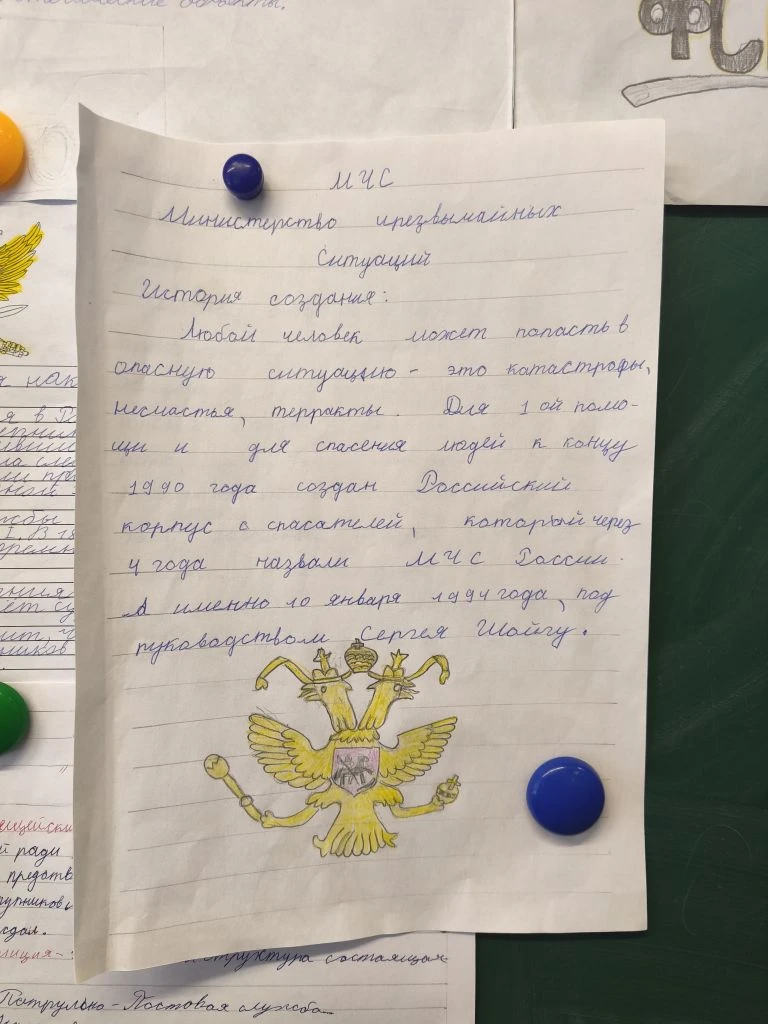 ФС
МЧС
Министерство чрезвычайных
Ситуаций
История создания:
Любой человек может попасть в
опасную ситуацию - это катастрофы,
несчастья, терракты. Для 1 ой помо-
щи и для спасения людей к концу
1990 года создан Российский
корпус с спасателей, который через
4 года назвали МЧС России.
А именно 10 января 1994 года, под
руководством Сергея Шойгу.
нак
я в
жбы
ради
сдал.
структура состоящая
Патрульно-Постовая служба